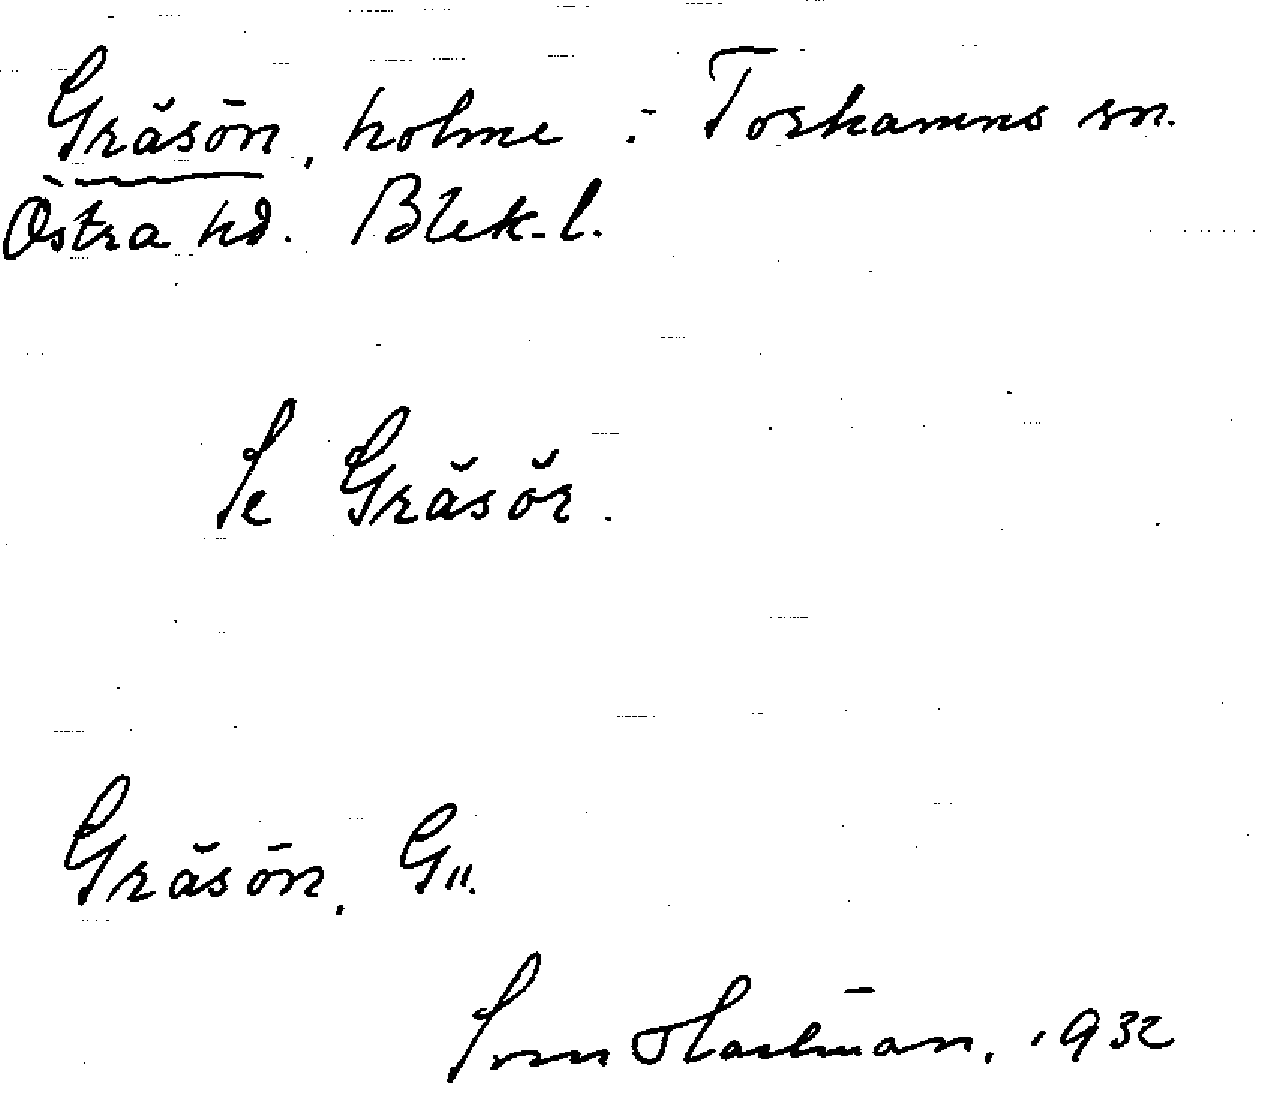 Gräsön, holme i Torhamns sn.
Östra hd. Blek. l.
Se Gräsör.
Gräsön, G 11.
Sven 1932